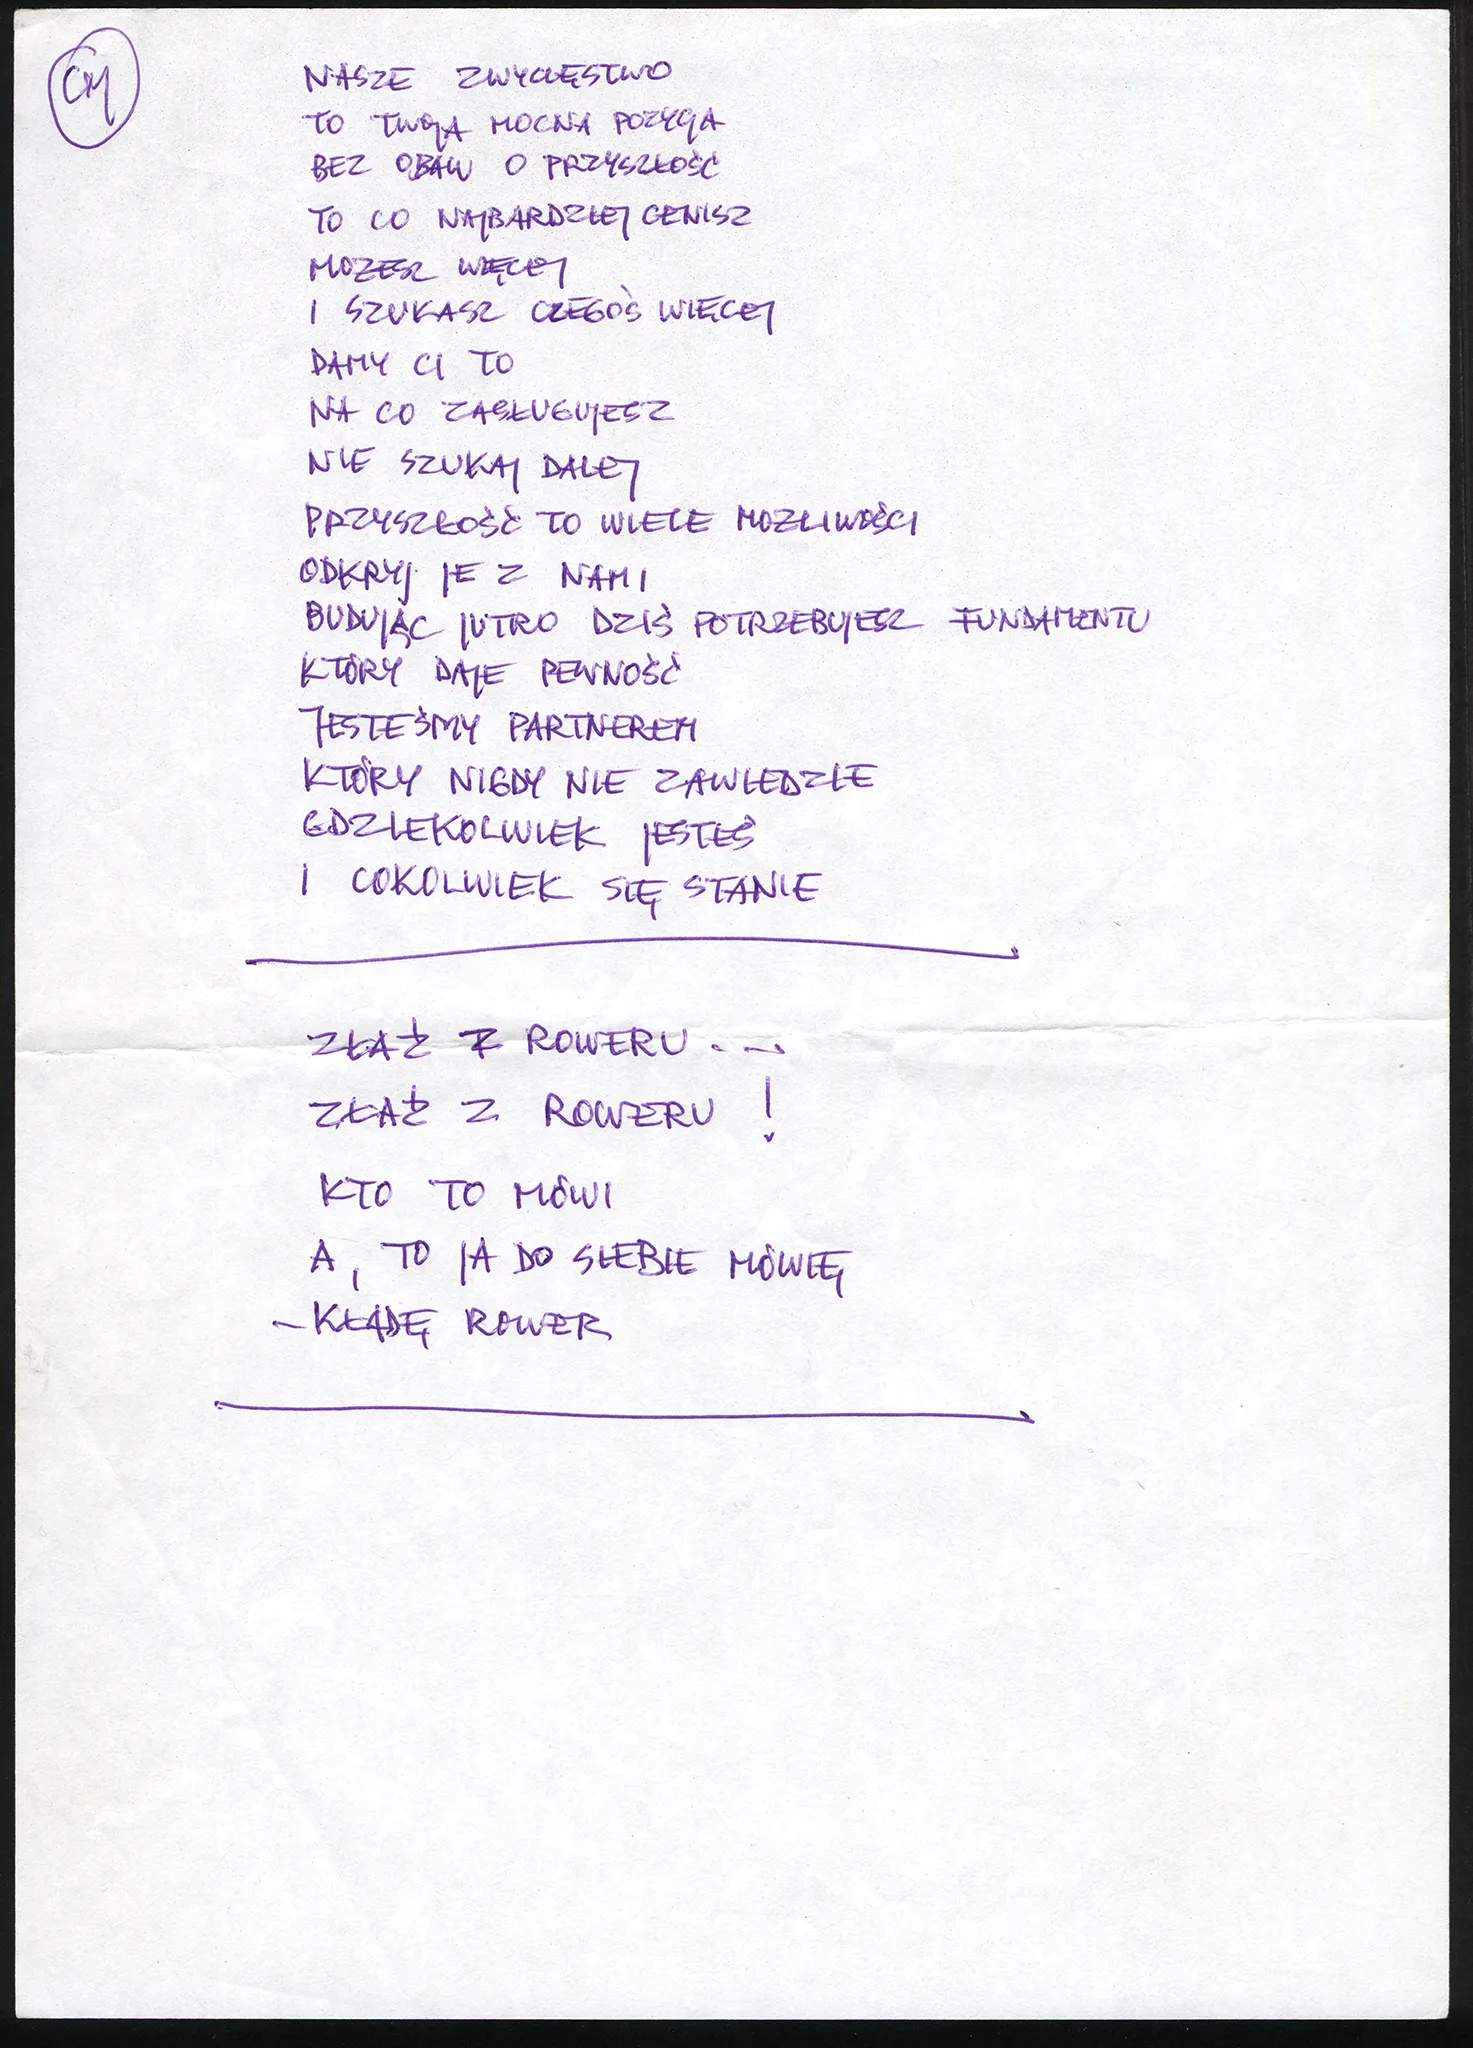 CM
NASZE ZWYCIĘSTWO
TO TWOJA MOCNA POZYCJA
BEZ OBAW O PRZYSZŁOŚĆ
TO CO NAJBARDZIEJ CENISZ
MOŻESZ WIĘCEJ
I SZUKASZ CZEGOŚ WIĘCEJ
DAMY CI TO
NA CO ZASŁUGUJESZ
NIE SZUKAJ DALEJ
PRZYSZŁOŚĆ TO WIELE MOŻLIWOŚCI
ODKRYJ JE Z NAMI
BUDUJĄC JUTRO DZIŚ POTRZEBUJESZ FUNDAMENTU
KTÓRY DAJE PEWNOŚĆ
JESTEŚMY PARTNEREM
KTÓRY NIGDY NIE ZAWIEDZIE
GDZIEKOLWIEK JESTEŚ
I COKOLWIEK SIĘ STANIE
ZŁAŹ Z ROWERU...
ZŁAŹ Z ROWERU!
KTO TO MÓWI
A, TO JA DO SIEBIE MÓWIĘ
– KŁADĘ ROWER